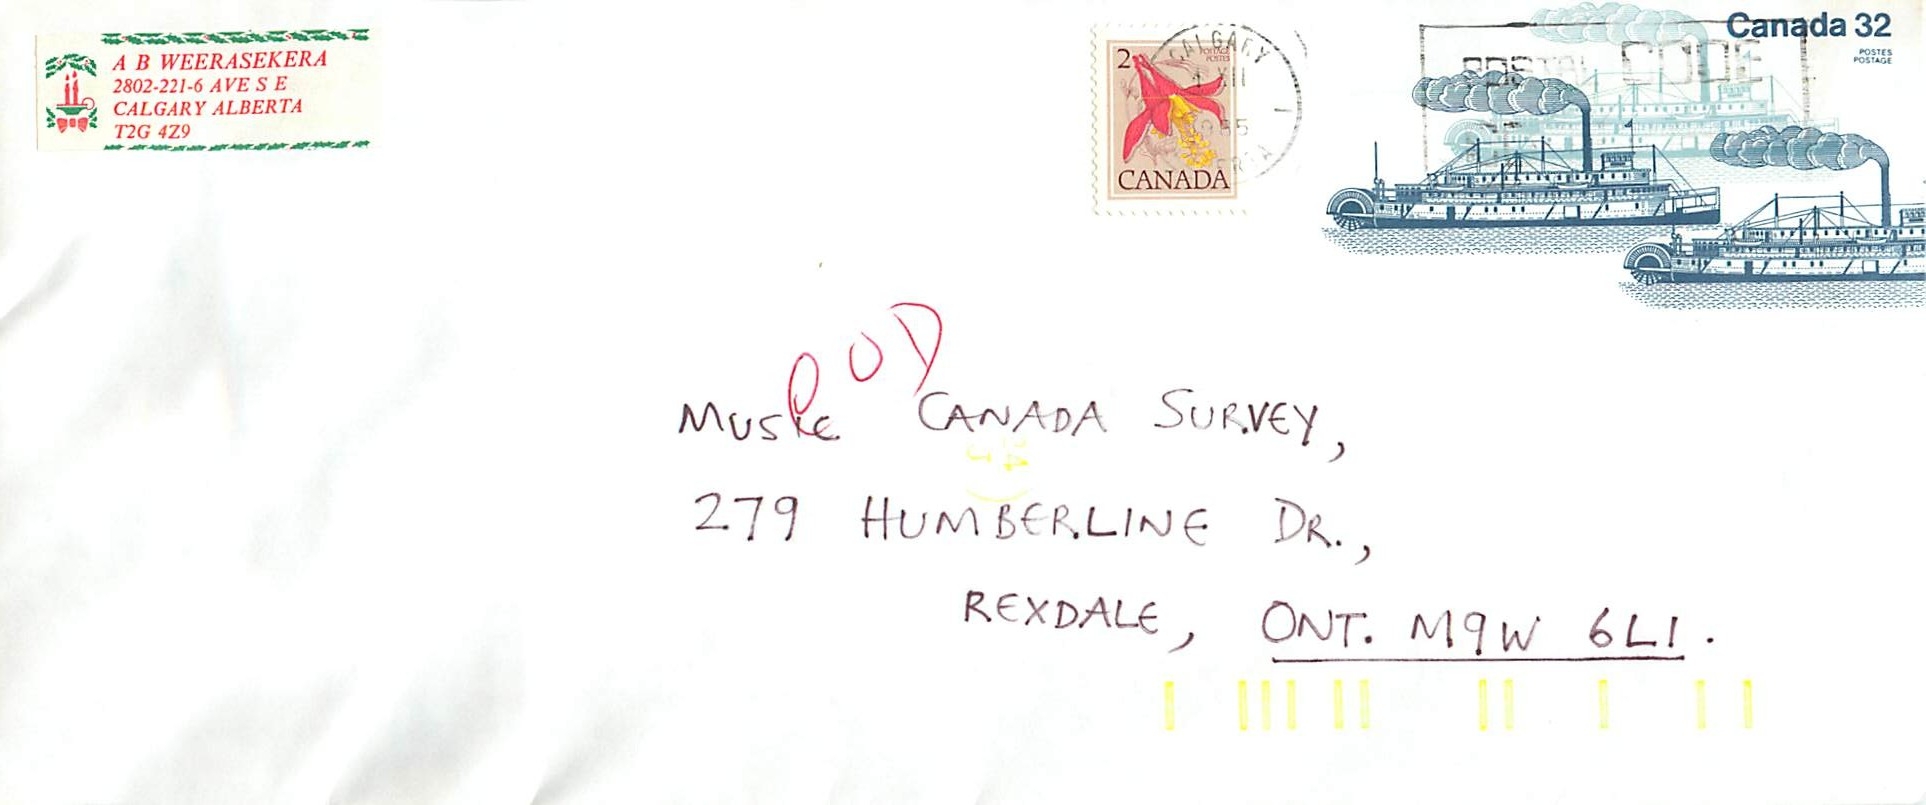 A B WEERASEKERA
2802-221-6 AVE S E
CALGARY ALBERTA
T2G 4Z9
2
POSTAGE
POSTES
CANADA
CALGARY
XII
POSTAL CODE
Canada 32
POSTES
POSTAGE
CANADA SURVEY,
279 HUMBERLINE DR.,
REXDALE, ONT. M9W 6L1.